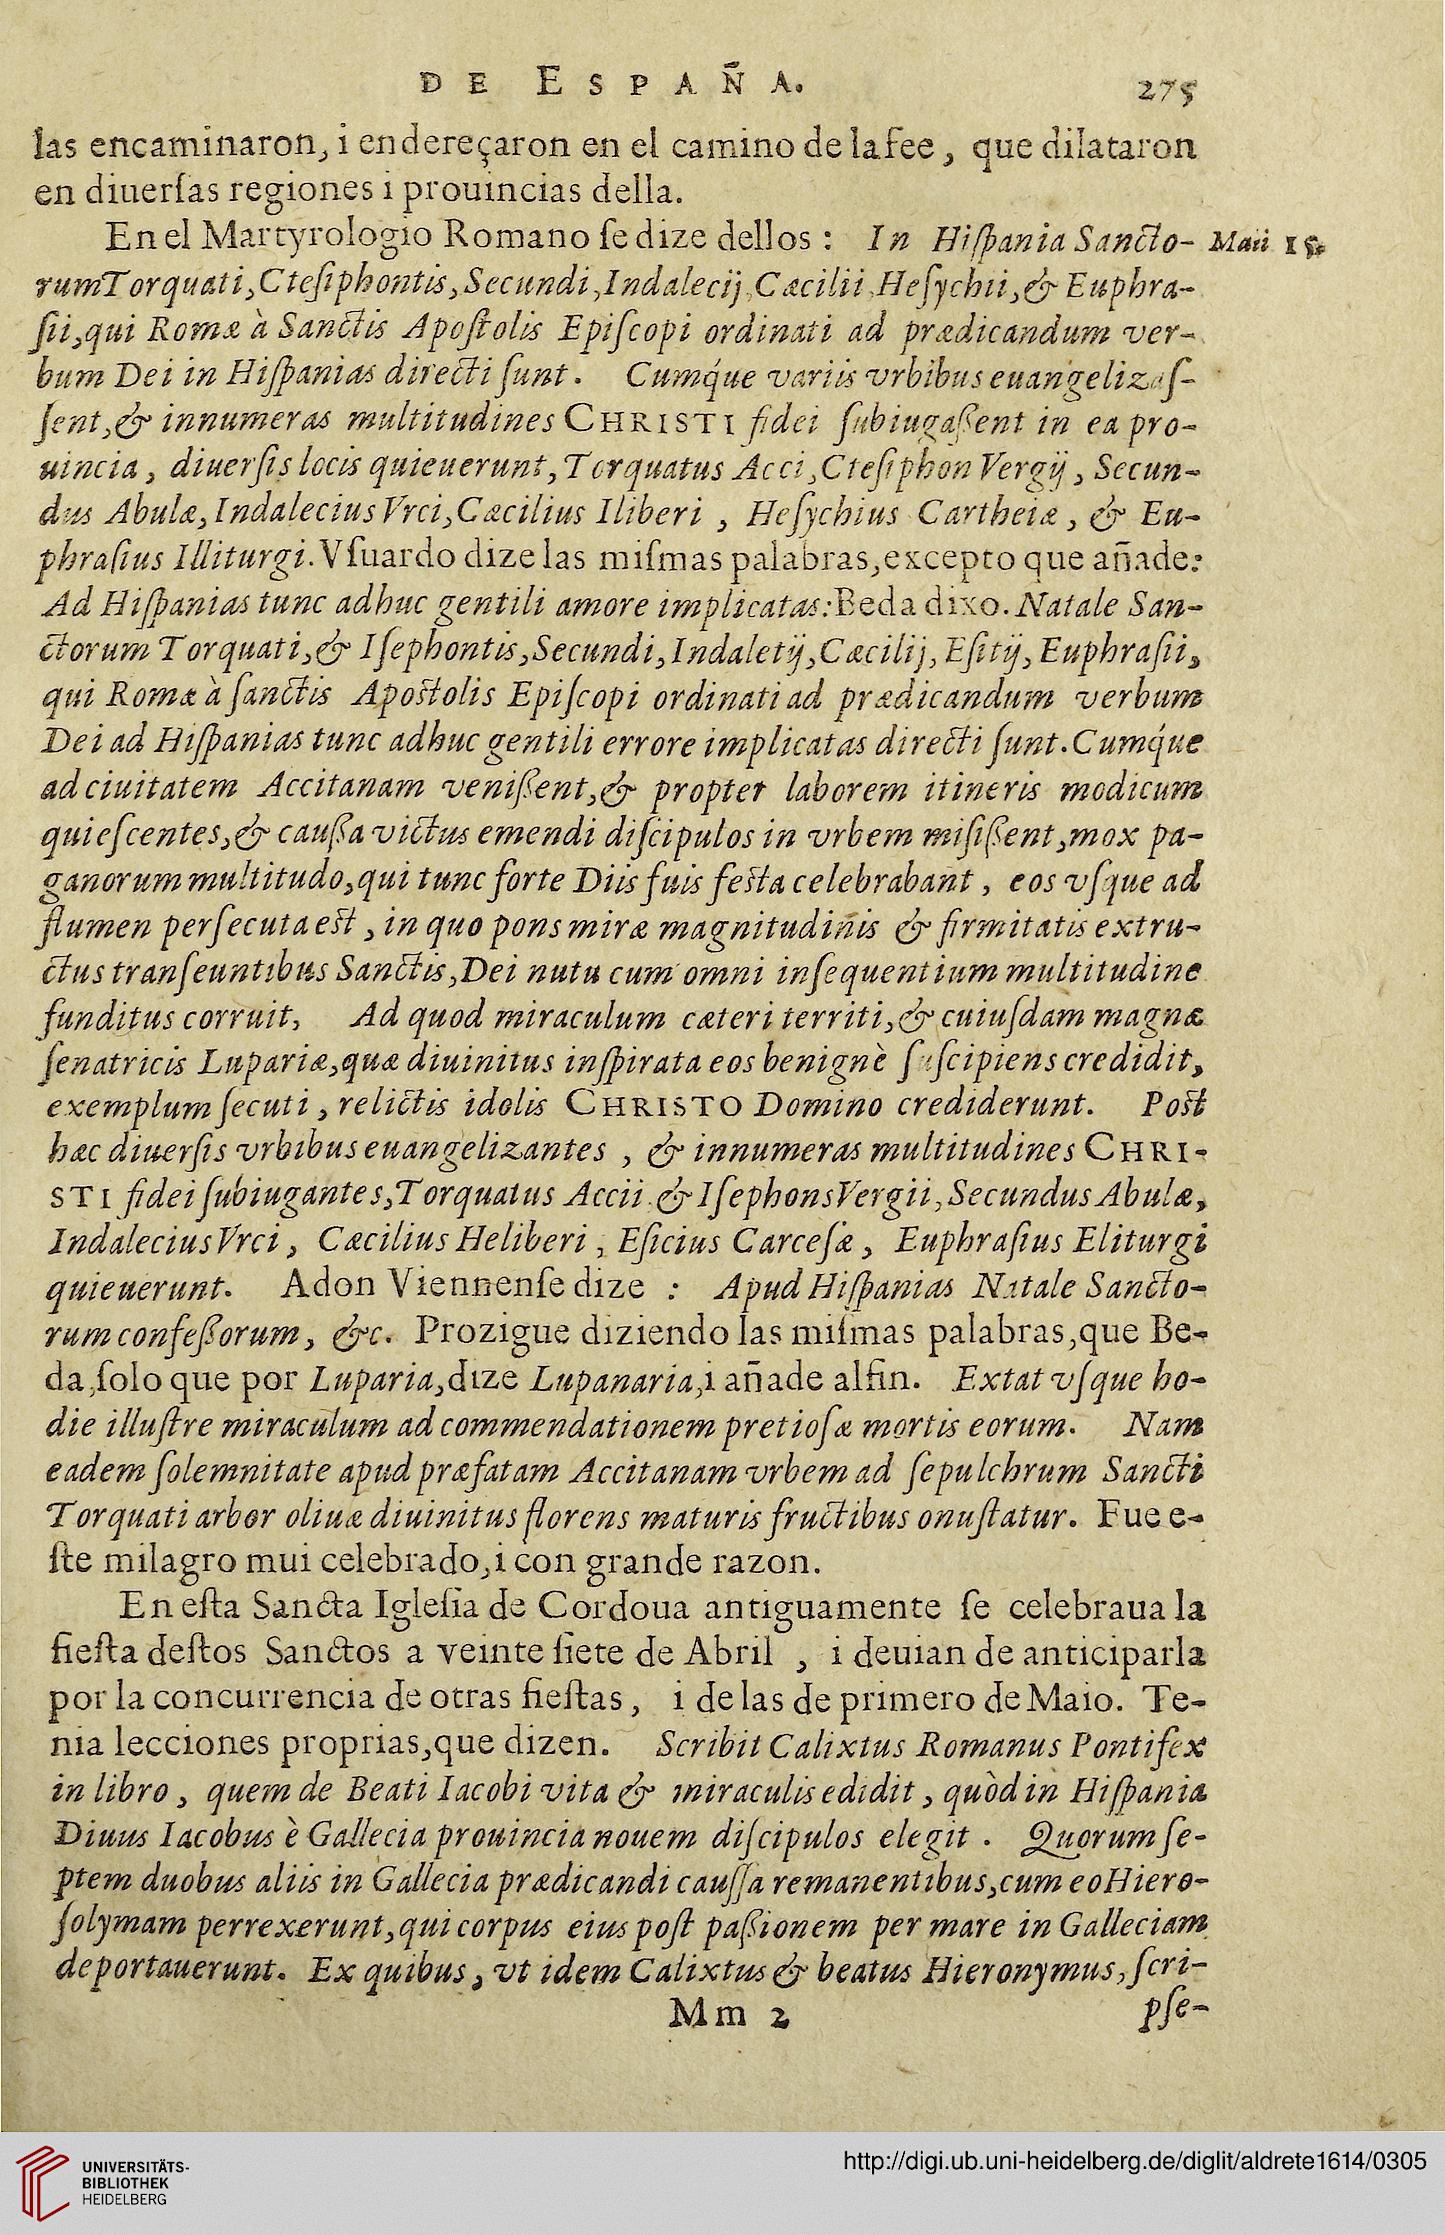 DE ESPAÑA. 275
las encaminaron, i endereçaron en el camino de la fee, que dilataron
en diuerſas regiones i prouincias della.
En el Martyrologio Romano ſe dize dellos: In Hiſpania Sancto- Maii 15.
rum Torquati, Cteſiphontis, Secundi, Indalecij, Cæcilii, Heſychii, & Euphra-
ſii, qui Romæ à Sanctis Apoſtolis Epiſcopi ordinati ad prædicandum ver-
bum Dei in Hiſpanias directi ſunt. Cumq́ue variis vrbibus euangelizaſ-
ſent, & innumeras multitudines CHRISTI fidei ſubiugaßent in ea pro-
uincia, diuerſis locis quieuerunt, Torquatus Acci, Cteſiphon Vergij, Secun-
dus Abulæ, Indalecius Vrci, Cæcilius Iliberi, Heſychius Cartheiæ, & Eu-
phraſius Illiturgi. Vſuardo dize las miſmas palabras, excepto que añade:
Ad Hiſpanias tunc adhuc gentili amore implicatas: Beda dixo. Natale San-
ctorum Torquati, & Iſephontis, Secundi, Indaletij, Cæcilij, Eſitij, Euphraſii,
qui Romæ à ſanctis Apostolis Epiſcopi ordinati ad prædicandum verbum
Dei ad Hiſpanias tunc adhuc gentili errore implicatas directi ſunt. Cumq́ue
ad ciuitatem Accitanam venißent, & propter laborem itineris modicum
quieſcentes, & caußa victus emendi diſcipulos in vrbem miſißent, mox pa-
ganorum multitudo, qui tunc forte Diis ſuis festa celebrabant, eos vſque ad
flumen perſecuta est, in quo pons miræ magnitudinis & firmitatis extru-
ctus tranſeuntibus Sanctis, Dei nutu cum omni inſequentium multitudine
funditus corruit, Ad quod miraculum cæteri territi, & cuiuſdam magnæ
ſenatricis Lupariæ, quæ diuinitus inſpirata eos benignè ſuſcipiens credidit,
exemplum ſecuti, relictis idolis CHRISTO Domino crediderunt. Post
hæc diuerſis vrbibus euangelizantes, & innumeras multitudines CHRI-
STI fidei ſubiugantes, Torquatus Accii & Iſephons Vergii, Secundus Abulæ,
Indalecius Vrci, Cæcilius Heliberi, Eſicius Carceſæ, Euphraſius Eliturgi
quieuerunt. Adon Viennenſe dize: Apud Hiſpanias Natale Sancto-
rum confeßorum, &c. Prozigue diziendo las miſmas palabras, que Be-
da, ſolo que por Luparia, dize Lupanaria, i añade al fin. Extat vſque ho-
die illuſtre miraculum ad commendationem pretioſæ mortis eorum. Nam
eadem ſolemnitate apud præfatam Accitanam vrbem ad ſepulchrum Sancti
Torquati arbor oliuæ diuinitus florens maturis fructibus onuſtatur. Fue e-
ſte milagro mui celebrado, i con grande razon.
En eſta Sancta Igleſia de Cordoua antiguamente ſe celebraua la
fieſta deſtos Sanctos a veinte ſiete de Abril, i deuian de anticiparla
por la concurrencia de otras fieſtas, i de las de primero de Maio. Te-
nia lecciones proprias, que dizen. Scribit Calixtus Romanus Pontifex
in libro, quem de Beati Iacobi vita & miraculis edidit, quòd in Hiſpania
Diuus Iacobus è Gallecia prouincia nouem diſcipulos elegit. Quorum ſe-
ptem duobus aliis in Gallecia prædicandi cauſſa remanentibus, cum eo Hiero-
ſolymam perrexerunt, qui corpus eius poſt paßionem per mare in Galleciam
deportauerunt. Ex quibus, vt idem Calixtus & beatus Hieronymus, ſcri-
Mm 2 pſe-
UNIVERSITÄTS-
BIBLIOTHEK
HEIDELBERG
http://digi.ub.uni-heidelberg.de/diglit/aldrete1614/0305